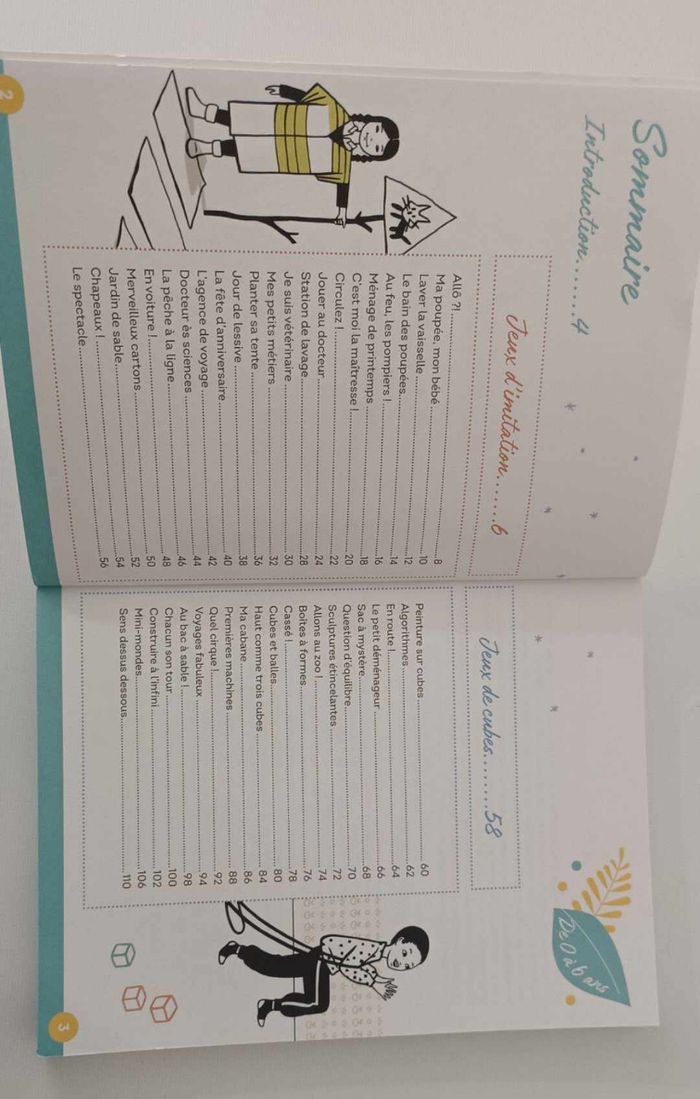 Sommaire
Introduction.......4
Jeux d'imitation......6
Allô ?!........8
Ma poupée, mon bébé........10
Laver la vaisselle........12
Le bain des poupées........14
Au feu, les pompiers !........16
Ménage de printemps........18
C'est moi la maîtresse !........20
Circulez !........22
Jouer au docteur........24
Station de lavage........28
Je suis vétérinaire........30
Mes petits métiers........32
Planter sa tente........36
Jour de lessive........38
La fête d'anniversaire........40
L'agence de voyage........42
Docteur ès sciences........44
La pêche à la ligne........46
En voiture !........48
Merveilleux cartons........50
Jardin de sable........52
Chapeaux !........54
Le spectacle........56
2
De 0 à 6 ans
Jeux de cubes.......58
Peinture sur cubes........60
Algorithmes........62
En route !........64
Le petit déménageur........66
Sac à mystère........68
Question d'équilibre........70
Sculptures étincelantes........72
Allons au zoo !........74
Boîtes à formes........76
Cassé !........78
Cubes et balles........80
Haut comme trois cubes........84
Ma cabane........86
Premières machines........88
Quel cirque !........92
Voyages fabuleux........94
Au bac à sable !........98
Chacun son tour........100
Construire à l'infini........102
Mini-mondes........106
Sens dessus dessous........110
3